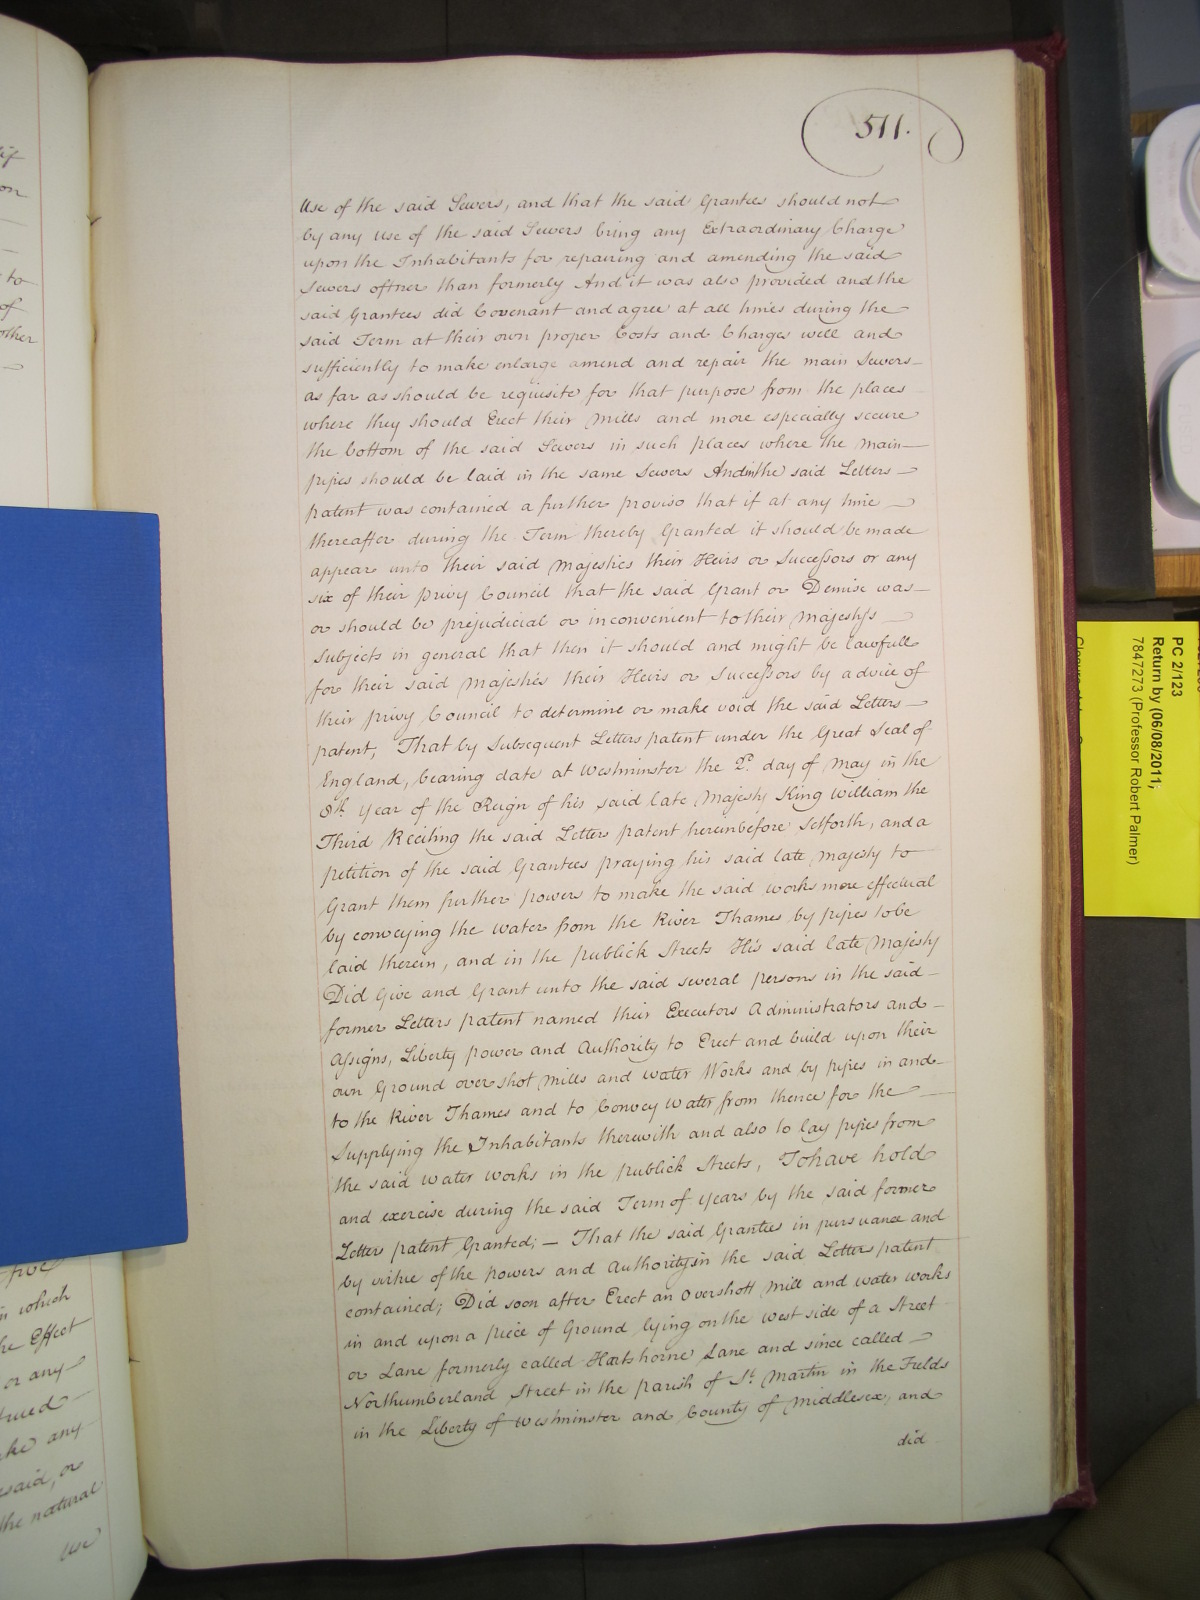 511.
Use of the said Sewers, and that the said Grantees should not
by any Use of the said Sewers bring any Extraordinary Charge
upon the Inhabitants for repairing and amending the said
Sewers oftner than formerly And it was also provided and the
said Grantees did Covenant and agree at all times during the
said Term at their own proper Costs and Charges well and
sufficiently to make enlarge amend and repair the main Sewers
as far as should be requisite for that purpose from the places
where they should Erect their Mills and more especially secure
the bottom of the said Sewers in such places where the main
pipes should be laid in the same Sewers And in the said Letters
patent was contained a further proviso that if at any time
thereafter during the Term thereby Granted it should be made
appear unto their said Majesties their Heirs or Successors or any
six of their privy Council that the said Grant or Demise was
or should be prejudicial or inconvenient to their Majestys
Subjects in general that then it should and might be lawfull
for their said Majesties their Heirs or Successors by advice of
their privy Council to determine or make void the said Letters
patent, That by Subsequent Letters patent under the Great Seal of
England, bearing date at Westminster the 2d. day of May in the
8th. Year of the Reign of his said late Majesty King William the
Third Reciting the said Letters patent hereinbefore setforth, and a
petition of the said Grantees praying his said late Majesty to
Grant them further powers to make the said works more effectual
by conveying the water from the River Thames by pipes to be
laid therein, and in the publick Streets His said late Majesty
Did Give and Grant unto the said several persons in the said
former Letters patent named their Executors Administrators and
Assigns, Liberty power and Authority to Erect and build upon their
own Ground overshot Mills and water Works and by pipes in and
to the River Thames and to Convey Water from thence for the
Supplying the Inhabitants therewith and also to lay pipes from
the said water works in the publick Streets, To have hold
and exercise during the said Term of years by the said former
Letters patent Granted; — That the said Grantees in pursuance and
by virtue of the powers and Authoritys in the said Letters patent
contained; Did soon after Erect an overshott Mill and water works
in and upon a piece of Ground lying on the West side of a Street
or Lane formerly called Hartshorne Lane and since called
Northumberland Street in the parish of St. Martin in the Fields
in the Liberty of Westminster and County of Middlesex, and
did
to
of
other
five
in which
the Effect
or any
make any
said, or
the natural
use
PC 2/123
Return by (06/08/2011;
7847273 (Professor Robert Palmer)